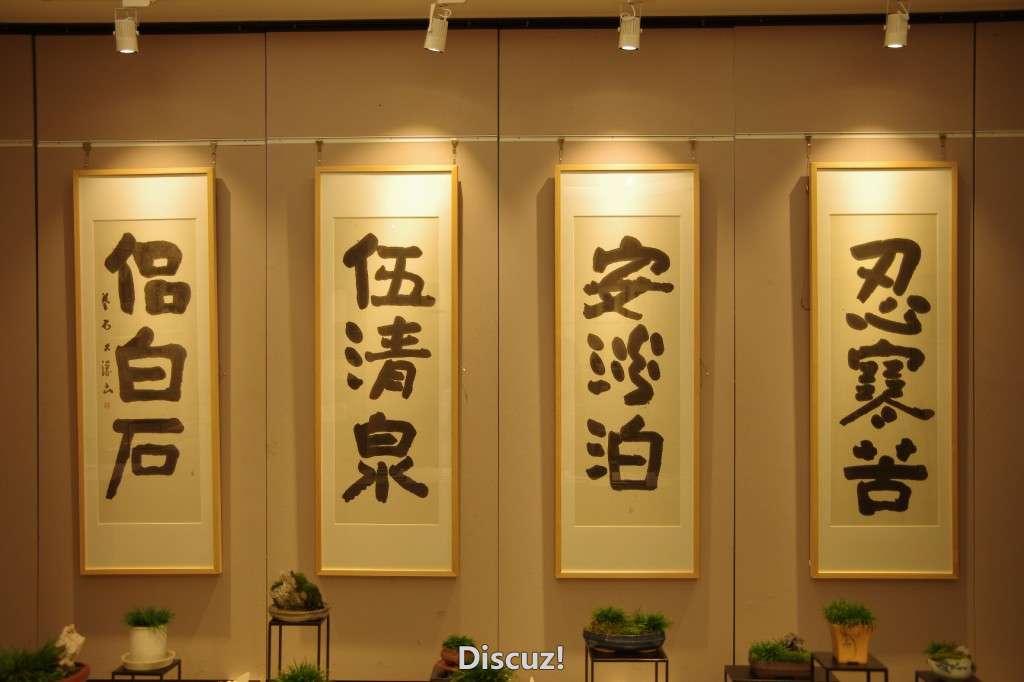 忍寒苦
安淡泊
伍清泉
侶白石
Discuz!